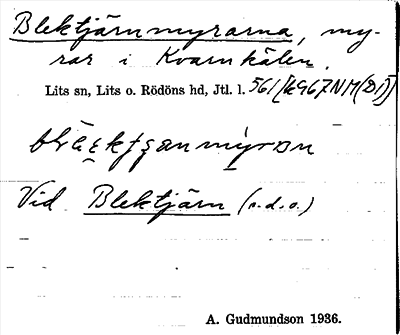 Blektjärnmyrarna, my-
rar i Kvarnkälen.
Lits sn, Lits o. Rödöns hd, Jtl. l. 561 [k967NM(D1)]
myran
Vid Blektjärn (s.d.o.)
A. Gudmundson 1936.